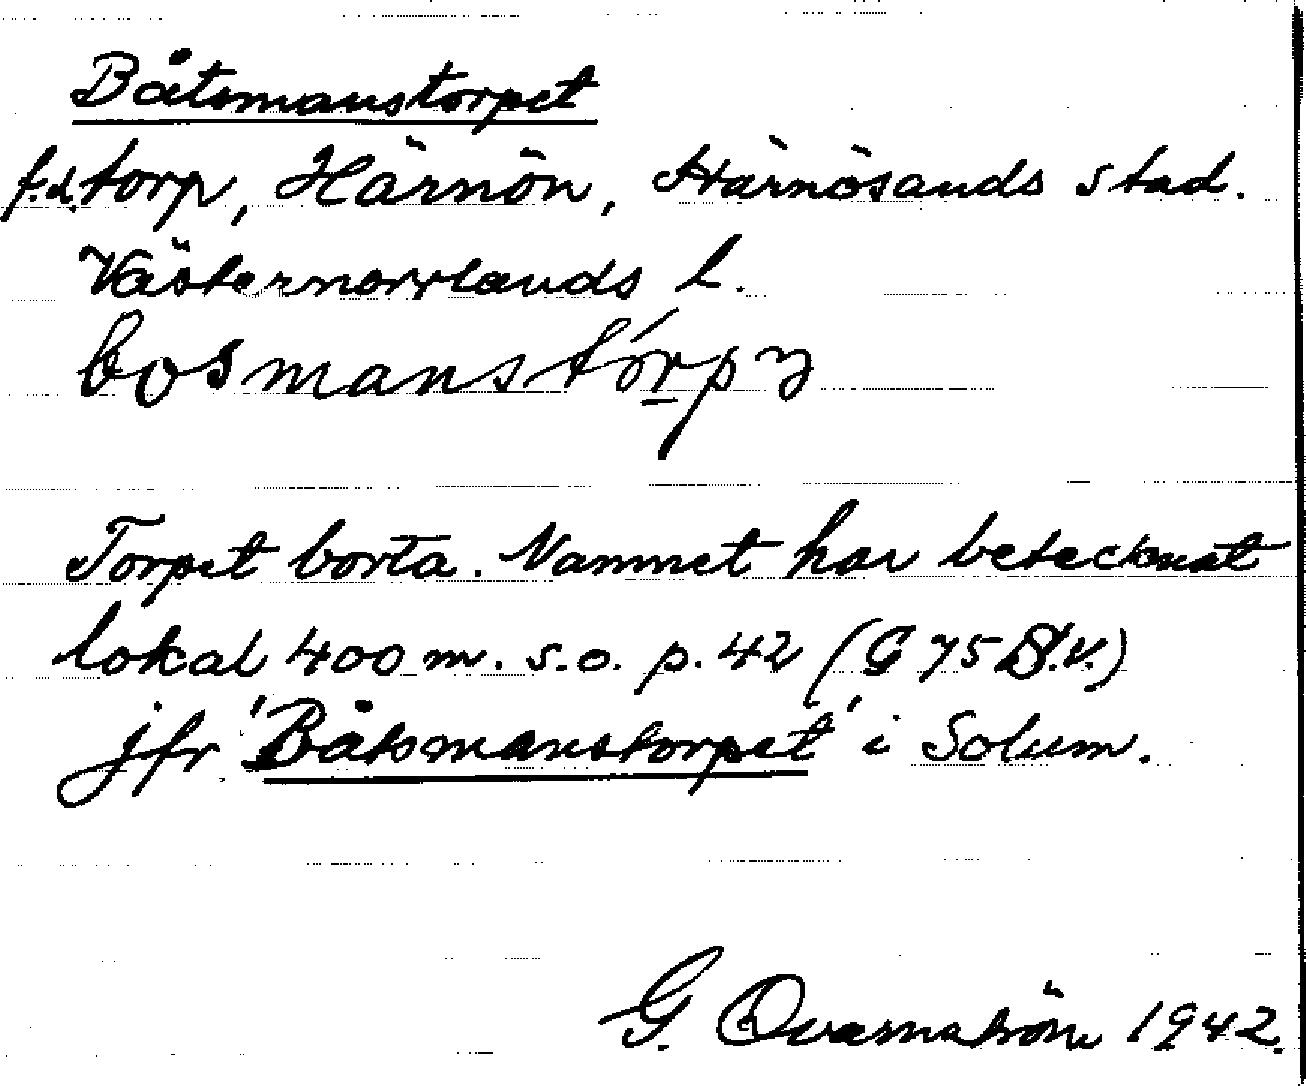 Båtsmanstorpet
f.d. torp, Härnön, Härnösands stad.
Västernorrlands l.
bosmanstórpə
Torpet borta. Namnet har betecknat
lokal 400 m. s.o. p. 42 (G 75 St.v.)
jfr 'Båtsmanstorpet' i Solum.
G. Qvarnström 1942.